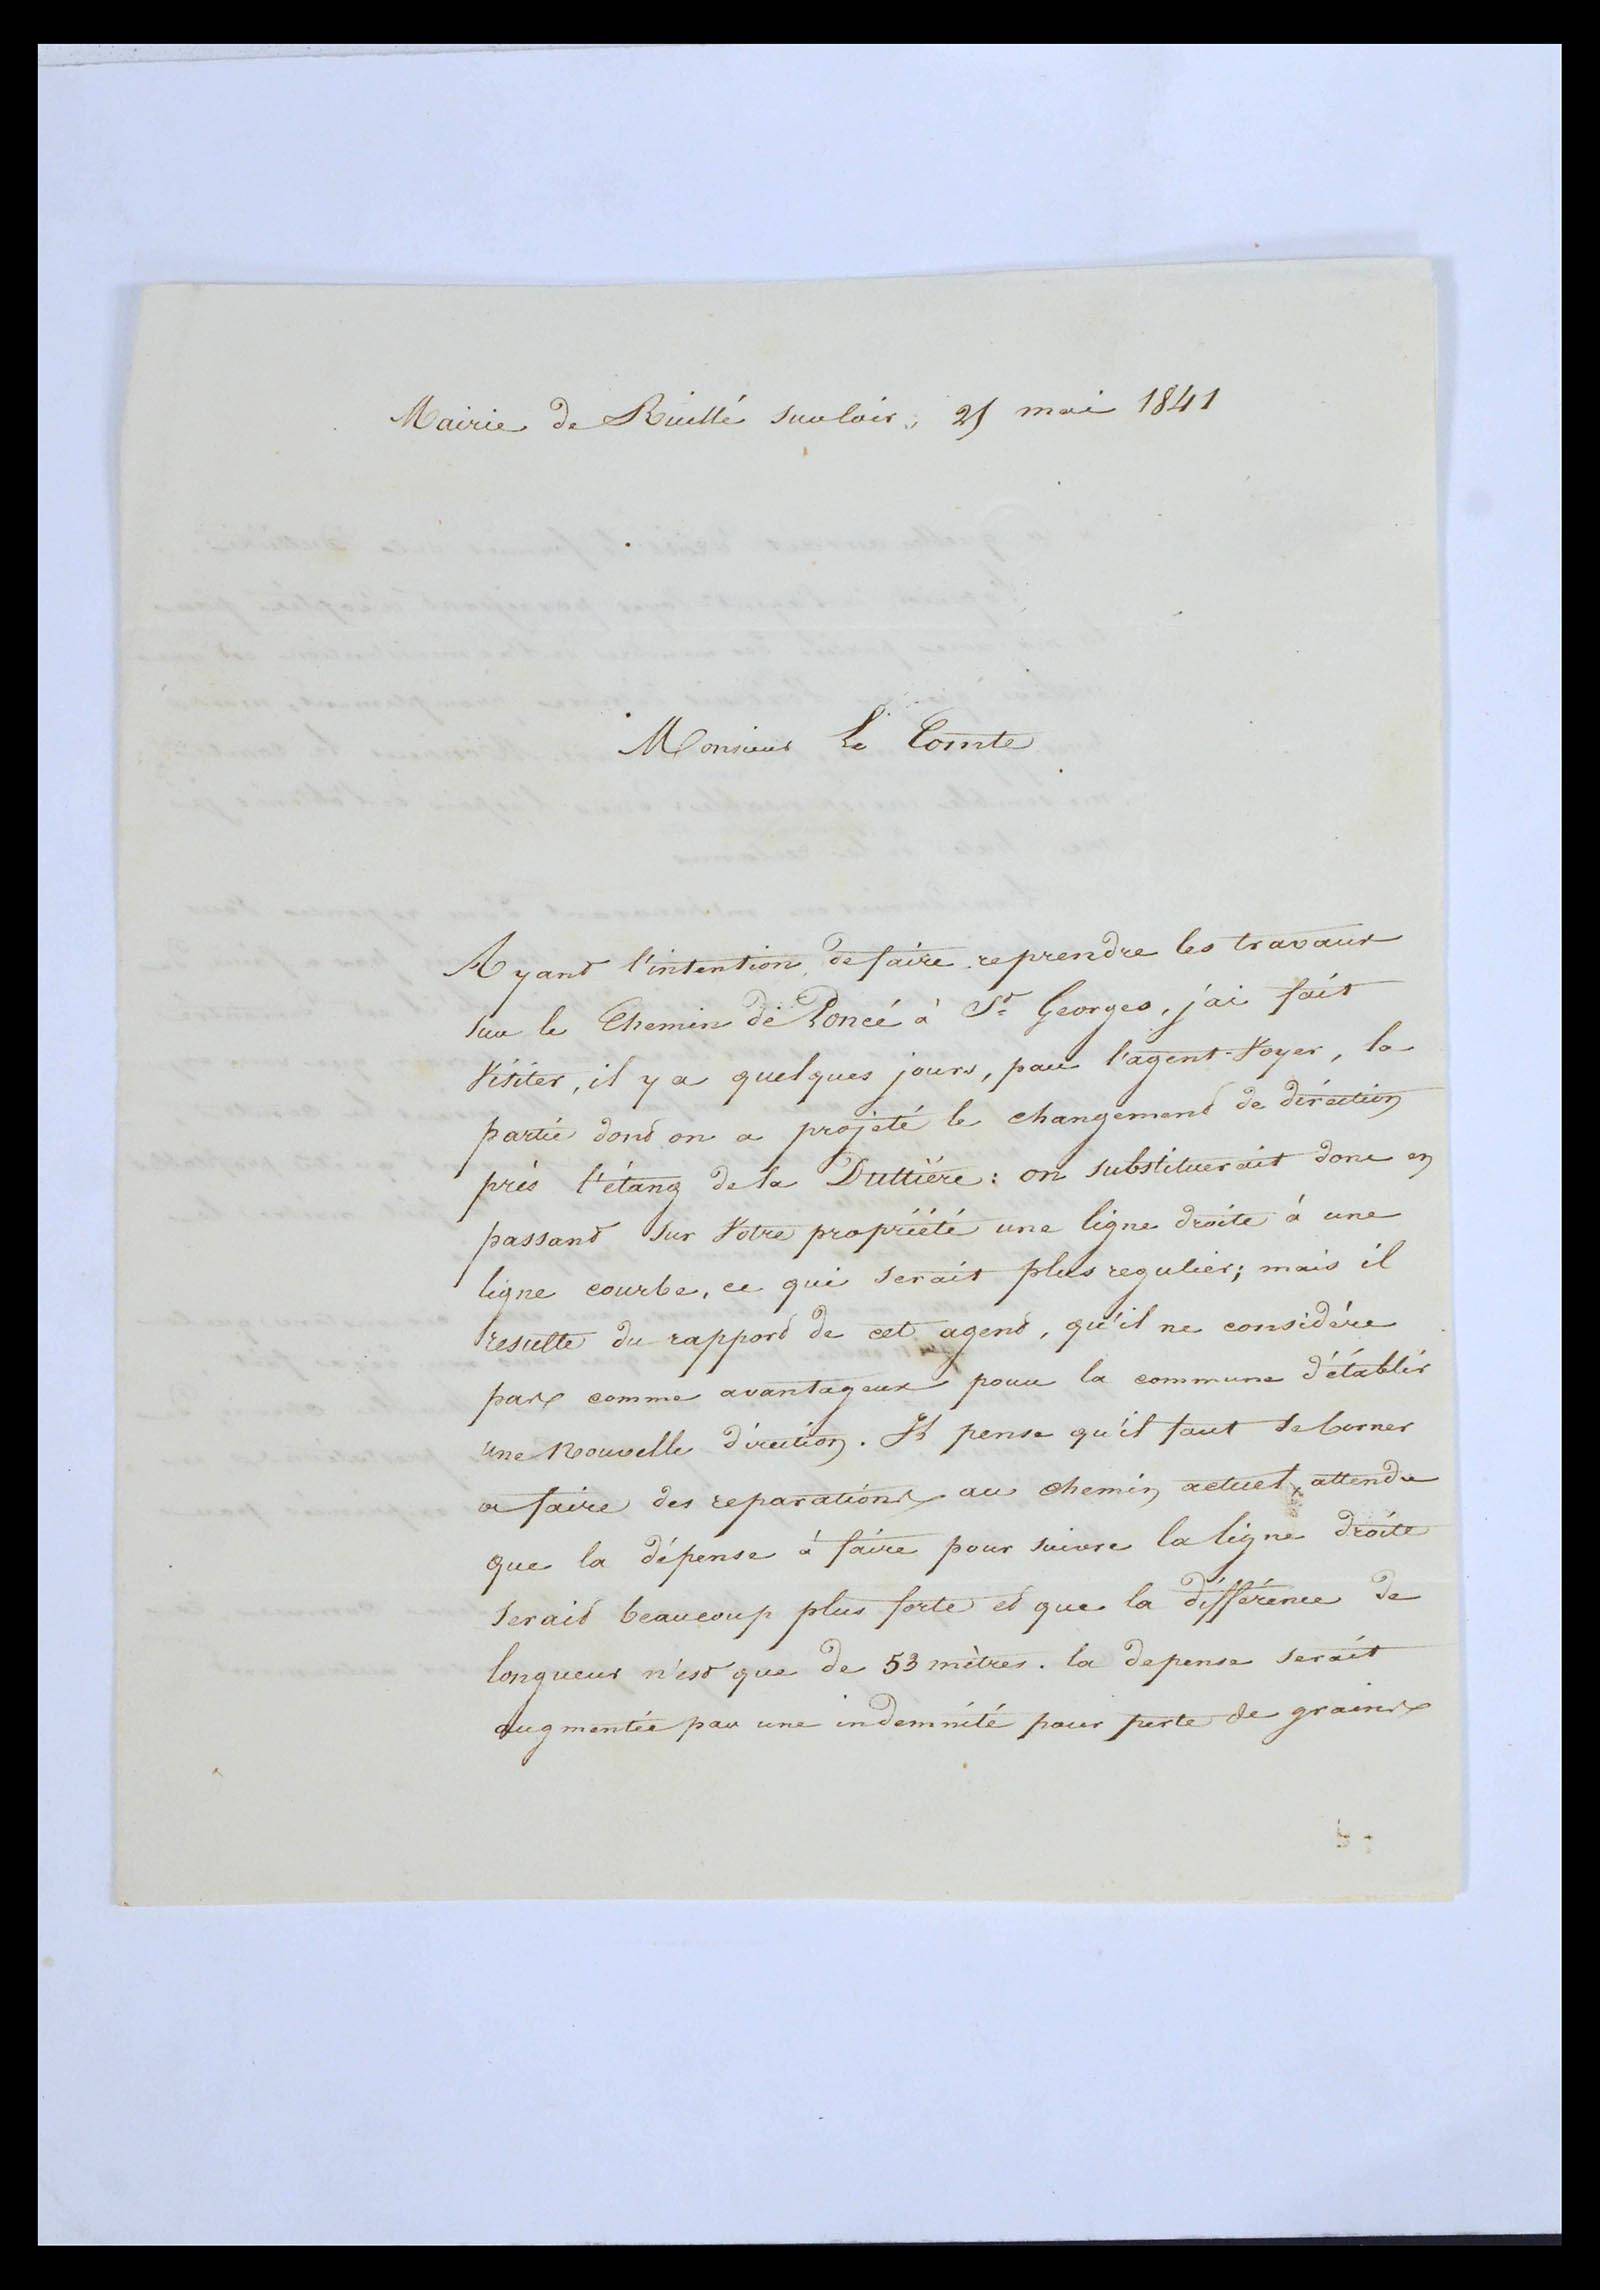 Mairie de Ruillé sur loir, 25 mai 1841
Monsieur Le Comte
Ayant l'intention de faire reprendre les travaux
sur le Chemin de Poncé à St Georges, j'ai fait
visiter, il y a quelques jours, par l'agent-voyer, la
partie dont on a projeté le changement de direction
près l'étang de la Duttière : on substituerait donc en
passant sur votre propriété une ligne droite à une
ligne courbe, ce qui serait plus regulier; mais il
resulte du rapport de cet agent, qu'il ne considére
pas comme avantageux pour la commune d'établir
une Nouvelle direction. Il pense qu'il faut se borner
a faire des reparations au chemin actuel, attendu
que la dépense à faire pour suivre la ligne droite
serait beaucoup plus forte et que la différence de
longueur n'est que de 53 mètres. la depense serait
augmentée par une indemnité pour perte de grains